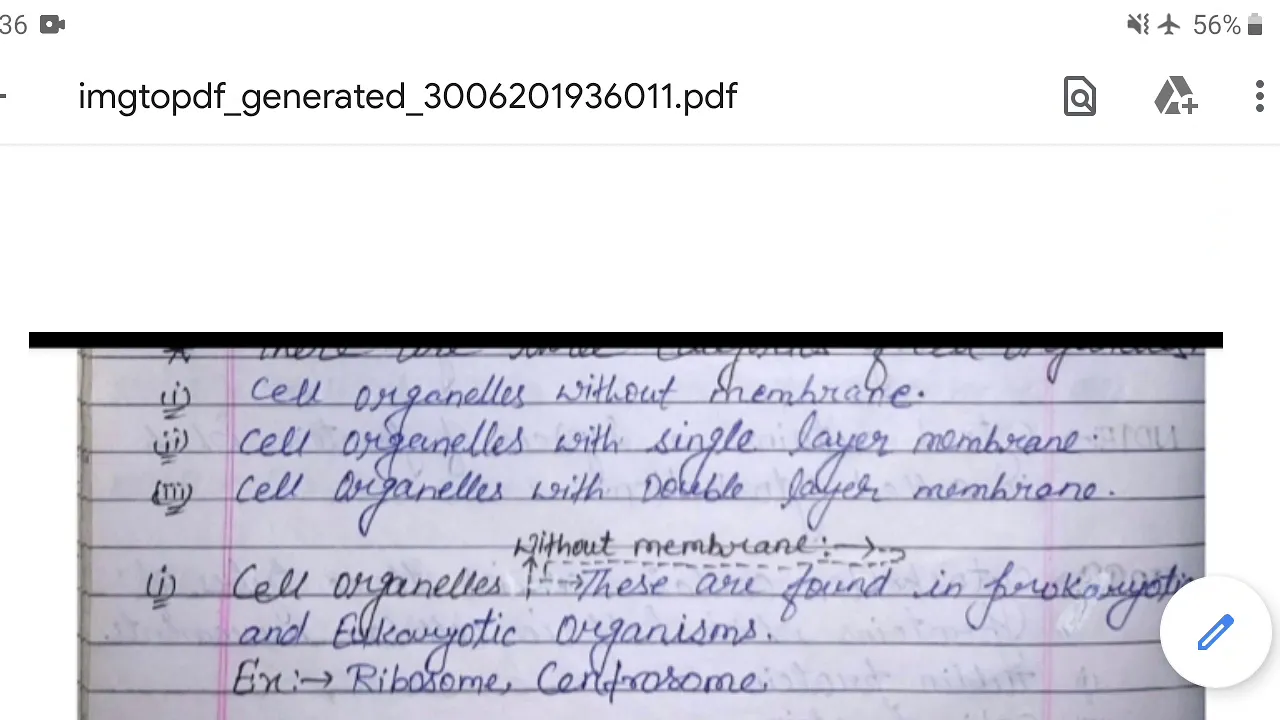 36
56%
imgtopdf_generated_3006201936011.pdf
There are three categories of cell organelles
(i) Cell organelles without membrane.
(ii) Cell organelles with single layer membrane.
(iii) Cell Organelles with Double layer membrane.
without membrane:→
(i) Cell organelles →These are found in prokaryotic
and Eukaryotic Organisms.
Ex:→ Ribosome, Centrosome.